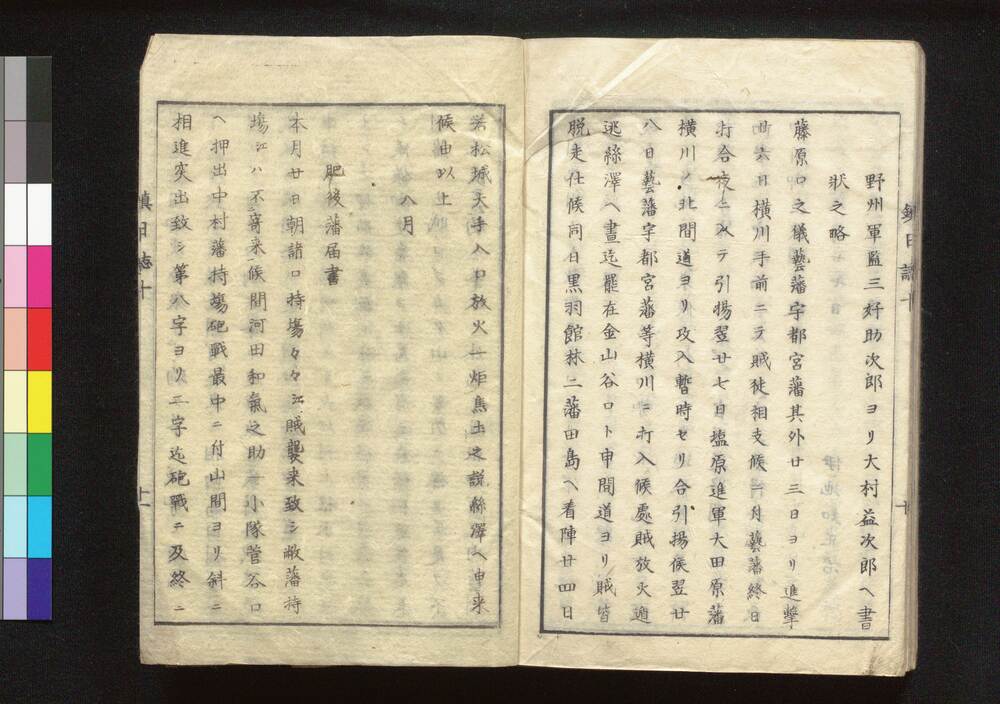 野州軍監三好助次郎ヨリ大村益次郎ヘ書
狀之略
藤原口之儀藝藩宇都宮藩其外廿三日ヨリ進擊
廿六日横川手前ニテ賊徒相支候ニ付藝藩終日
打合夜ニ入テ引揚翌廿七日塩原進軍大田原藩
横川ノ北間道ヨリ攻入暫時セリ合引揚候翌廿
八日藝藩宇都宮藩等横川ニ打入候處賊放火遁
逃絲澤ヘ晝迄罷在金山谷口ト申間道ヨリ賊皆
脱走仕候同日黒羽館林二藩田島ヘ着陣廿四日
若松城大手入口放火一炬焦土之説絲澤ヘ申来
候由以上
八月
肥後藩届書
本月廿日朝諸口持塲々々江賊襲来致シ敝藩持
塲江ハ不寄来候間河田和氣之助一小隊菅谷口
ヘ押出中村藩持塲砲戰最中ニ付山間ヨリ斜ニ
相進突出致シ第八字ヨリ二字迄砲戰ニ及終ニ
鎮日誌十
十
鎮日誌十
十一